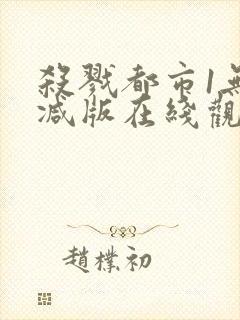 殺戮都市1無
減版在綫觀
趙樸初